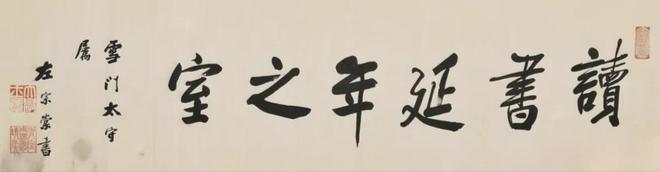 讀書延年之室
雪門太守
屬
左宗棠書